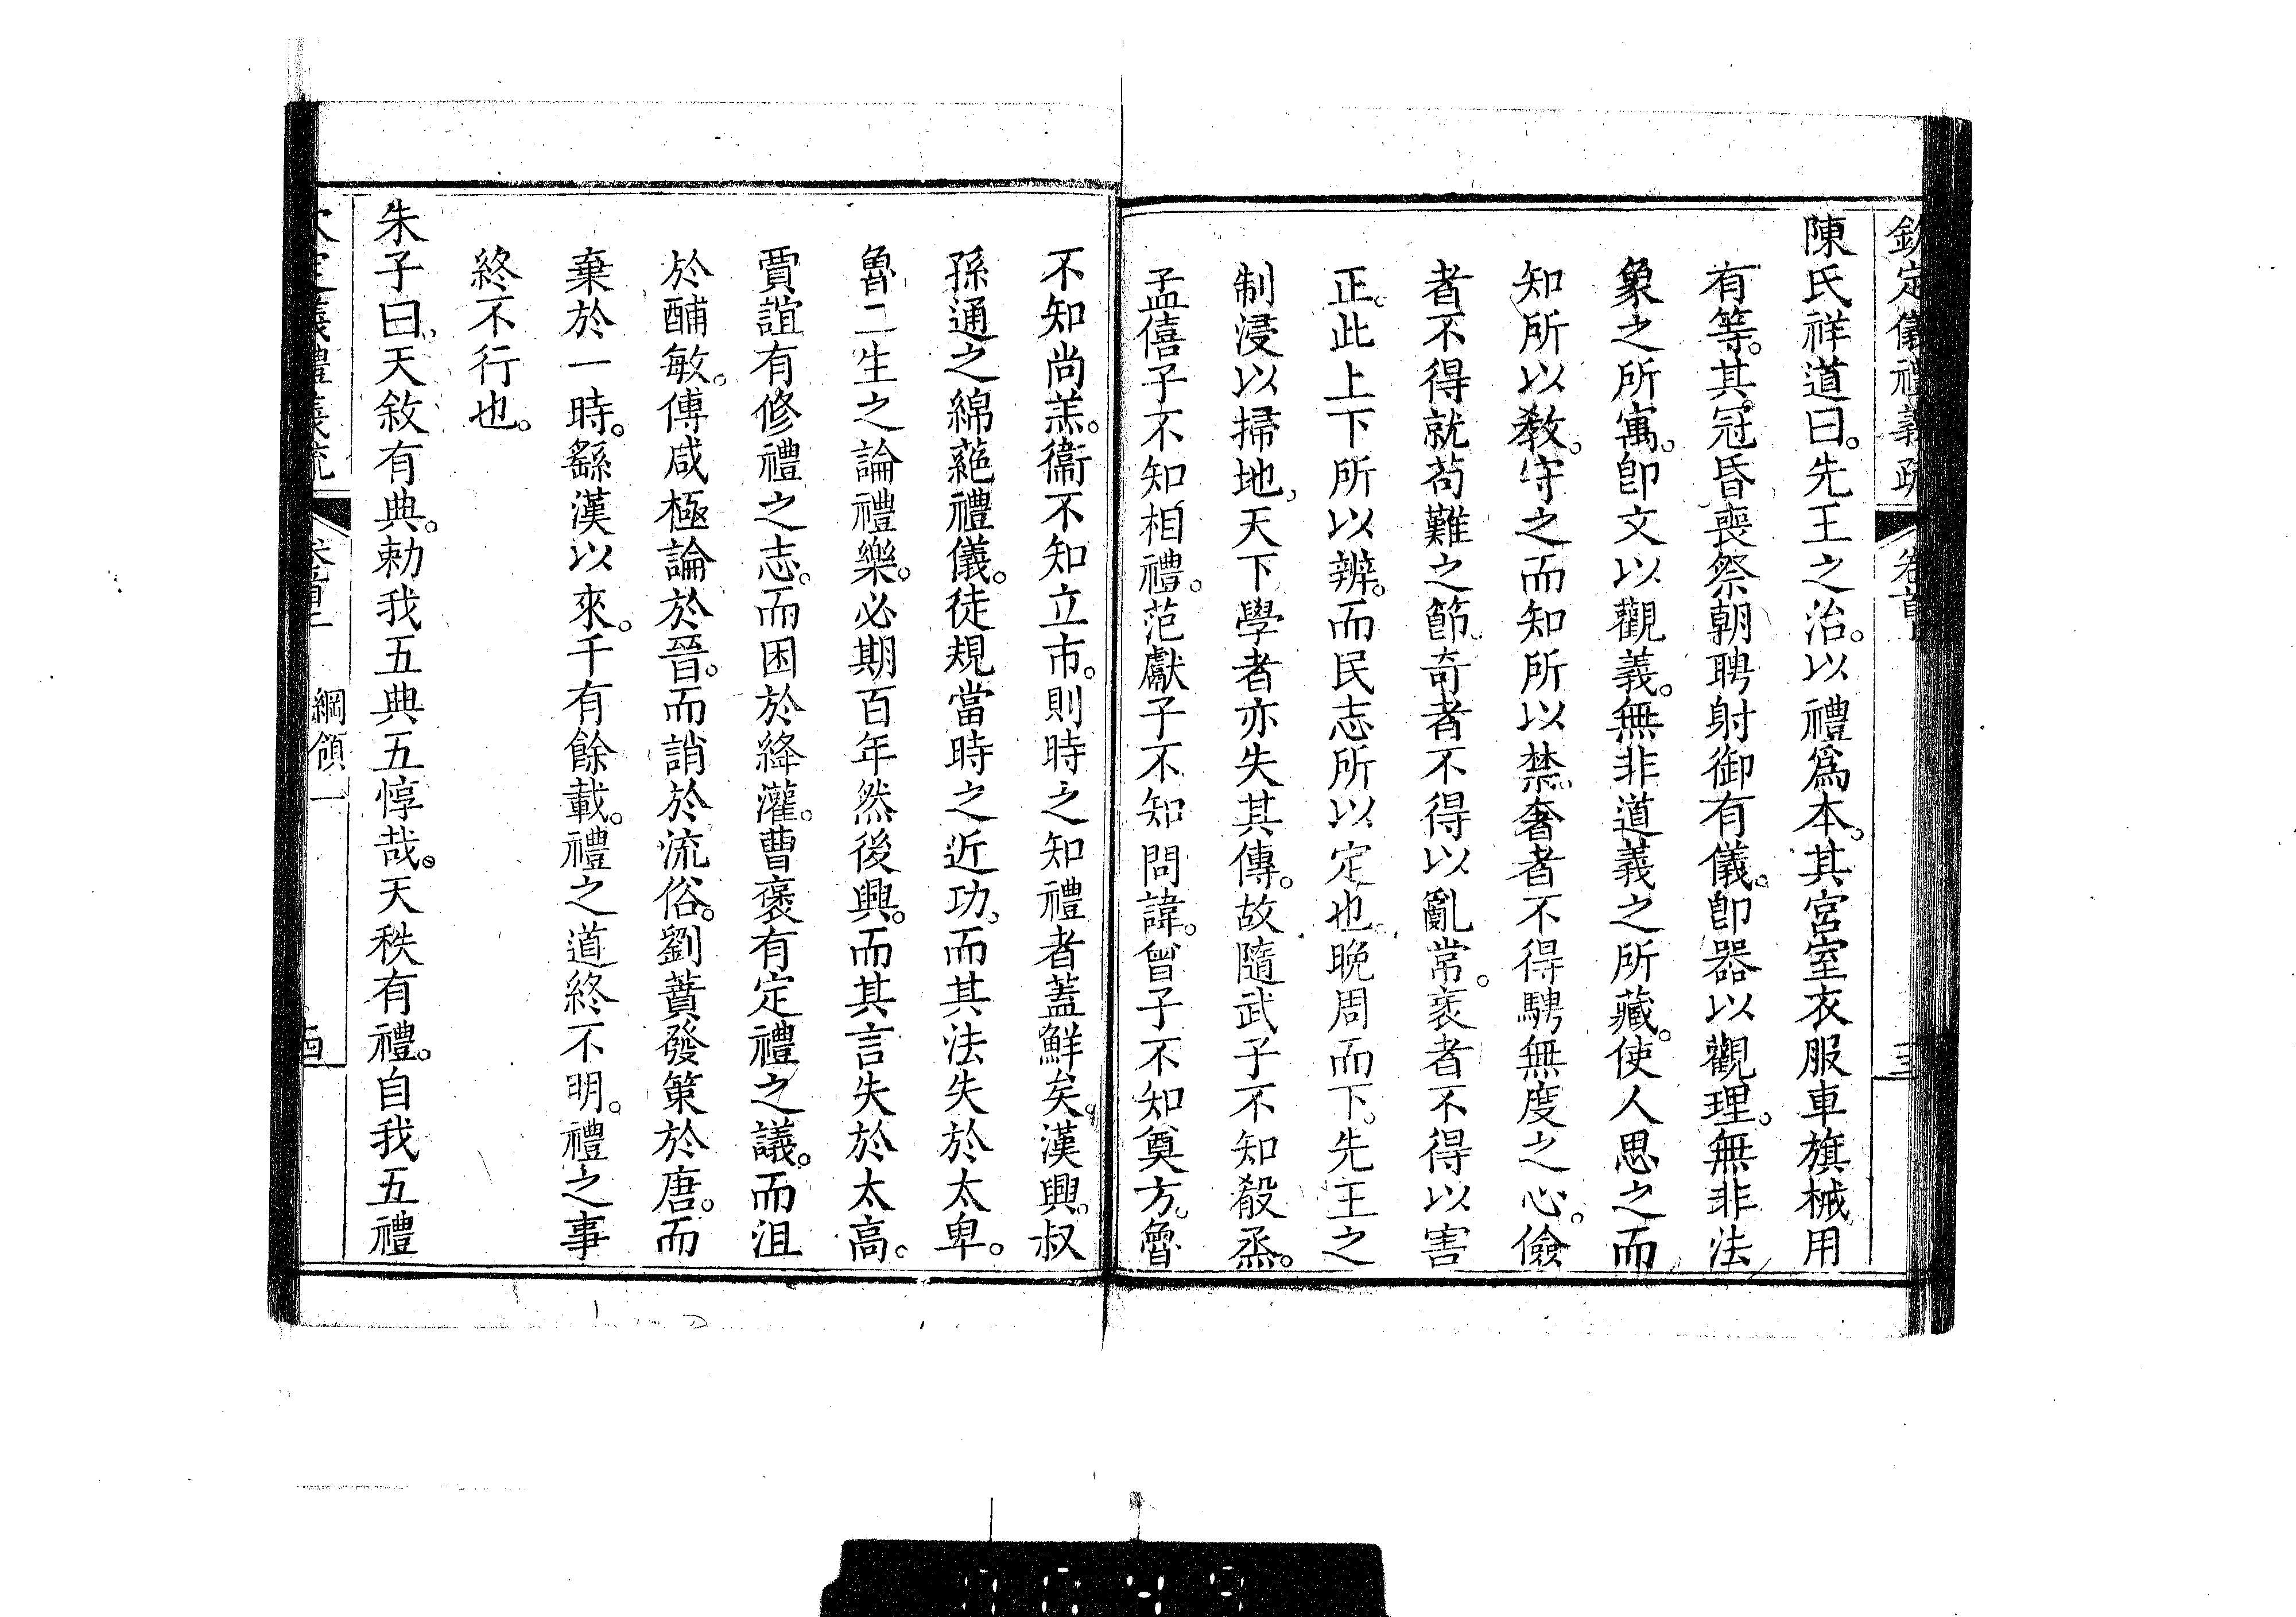 欽定儀禮義疏 卷首 三
陳氏祥道曰。先王之治。以禮爲本。其宮室衣服車旗械用
有等。其冠昏喪祭朝聘射御有儀。卽器以觀理。無非法
象之所寓。卽文以觀義。無非道義之所藏。使人思之而
知所以教。守之而知所以禁。奢者不得騁無度之心。儉
者不得就苟難之節。奇者不得以亂常。衺者不得以害
正。此上下所以辨。而民志所以定也。晚周而下。先王之
制浸以掃地。天下學者亦失其傳。故隨武子不知殽烝。
孟僖子不知相禮。范獻子不知問諱。曾子不知奠方。魯
不知尚羔。衞不知立市。則時之知禮者蓋鮮矣。漢興。叔
孫通之綿蕝禮儀。徒規當時之近功。而其法失於太卑。
魯二生之論禮樂。必期百年然後興。而其言失於太高。
賈誼有修禮之志。而困於絳灌。曹褒有定禮之議。而沮
於酺敏。傅咸極論於晉。而誚於流俗。劉蕡發策於唐。而
棄於一時。繇漢以來。千有餘載。禮之道終不明。禮之事
終不行也。
朱子曰。天敘有典。勅我五典五惇哉。天秩有禮。自我五禮
欽定儀禮義疏 卷首 綱領一 四